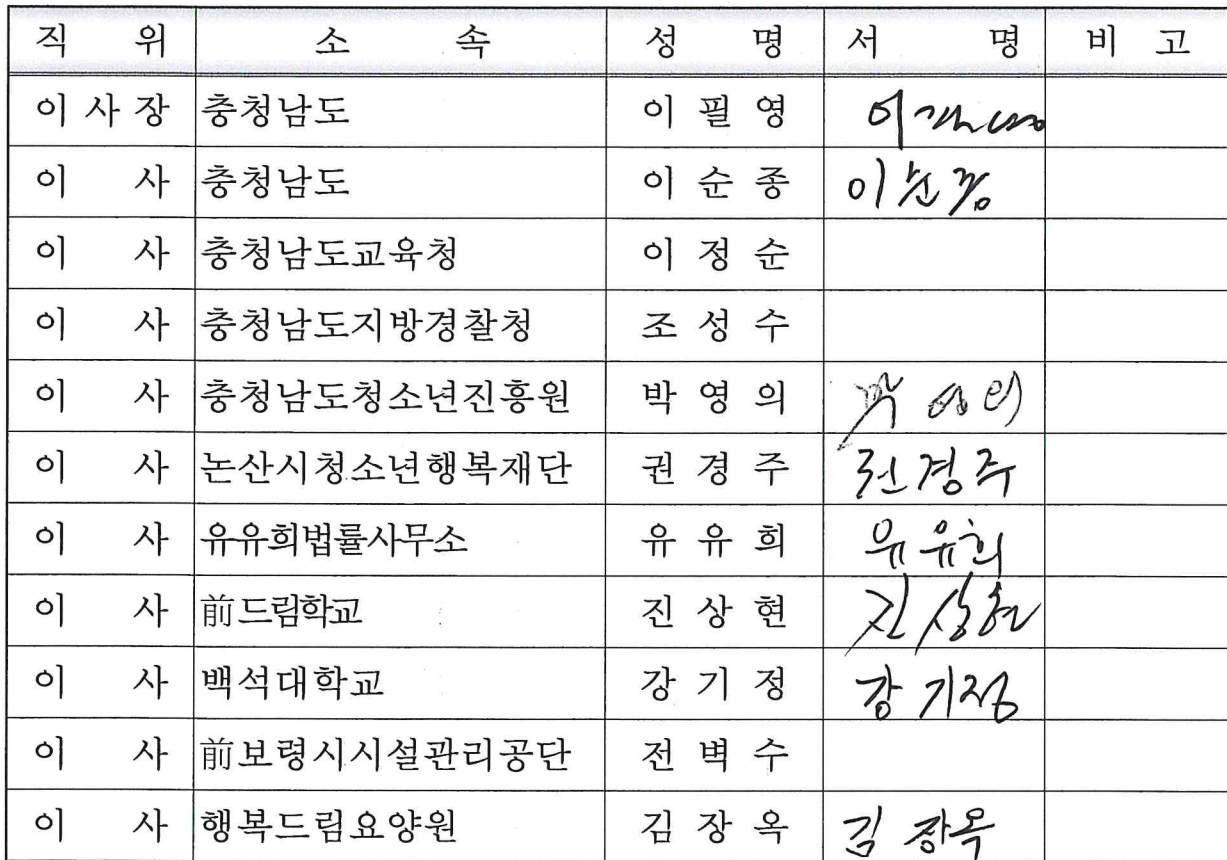 직 위 소 속 성 명 서 명 비 고
이 사 장 충청남도 이 필 영 이필영
이 사 충청남도 이 순 종 이순종
이 사 충청남도교육청 이 정 순
이 사 충청남도지방경찰청 조 성 수
이 사 충청남도청소년진흥원 박 영 의 박영의
이 사 논산시청소년행복재단 권 경 주 권경주
이 사 유유희법률사무소 유 유 희 유유희
이 사 前드림학교 진 상 현 진상현
이 사 백석대학교 강 기 정 강기정
이 사 前보령시시설관리공단 전 벽 수
이 사 행복드림요양원 김 장 옥 김장옥